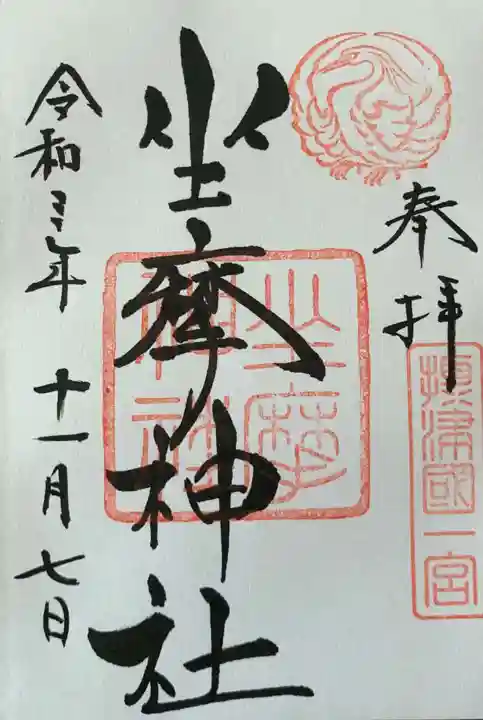 奉拝
攝津國一宮
坐摩神社
坐摩神社
令和三年
十一月七日